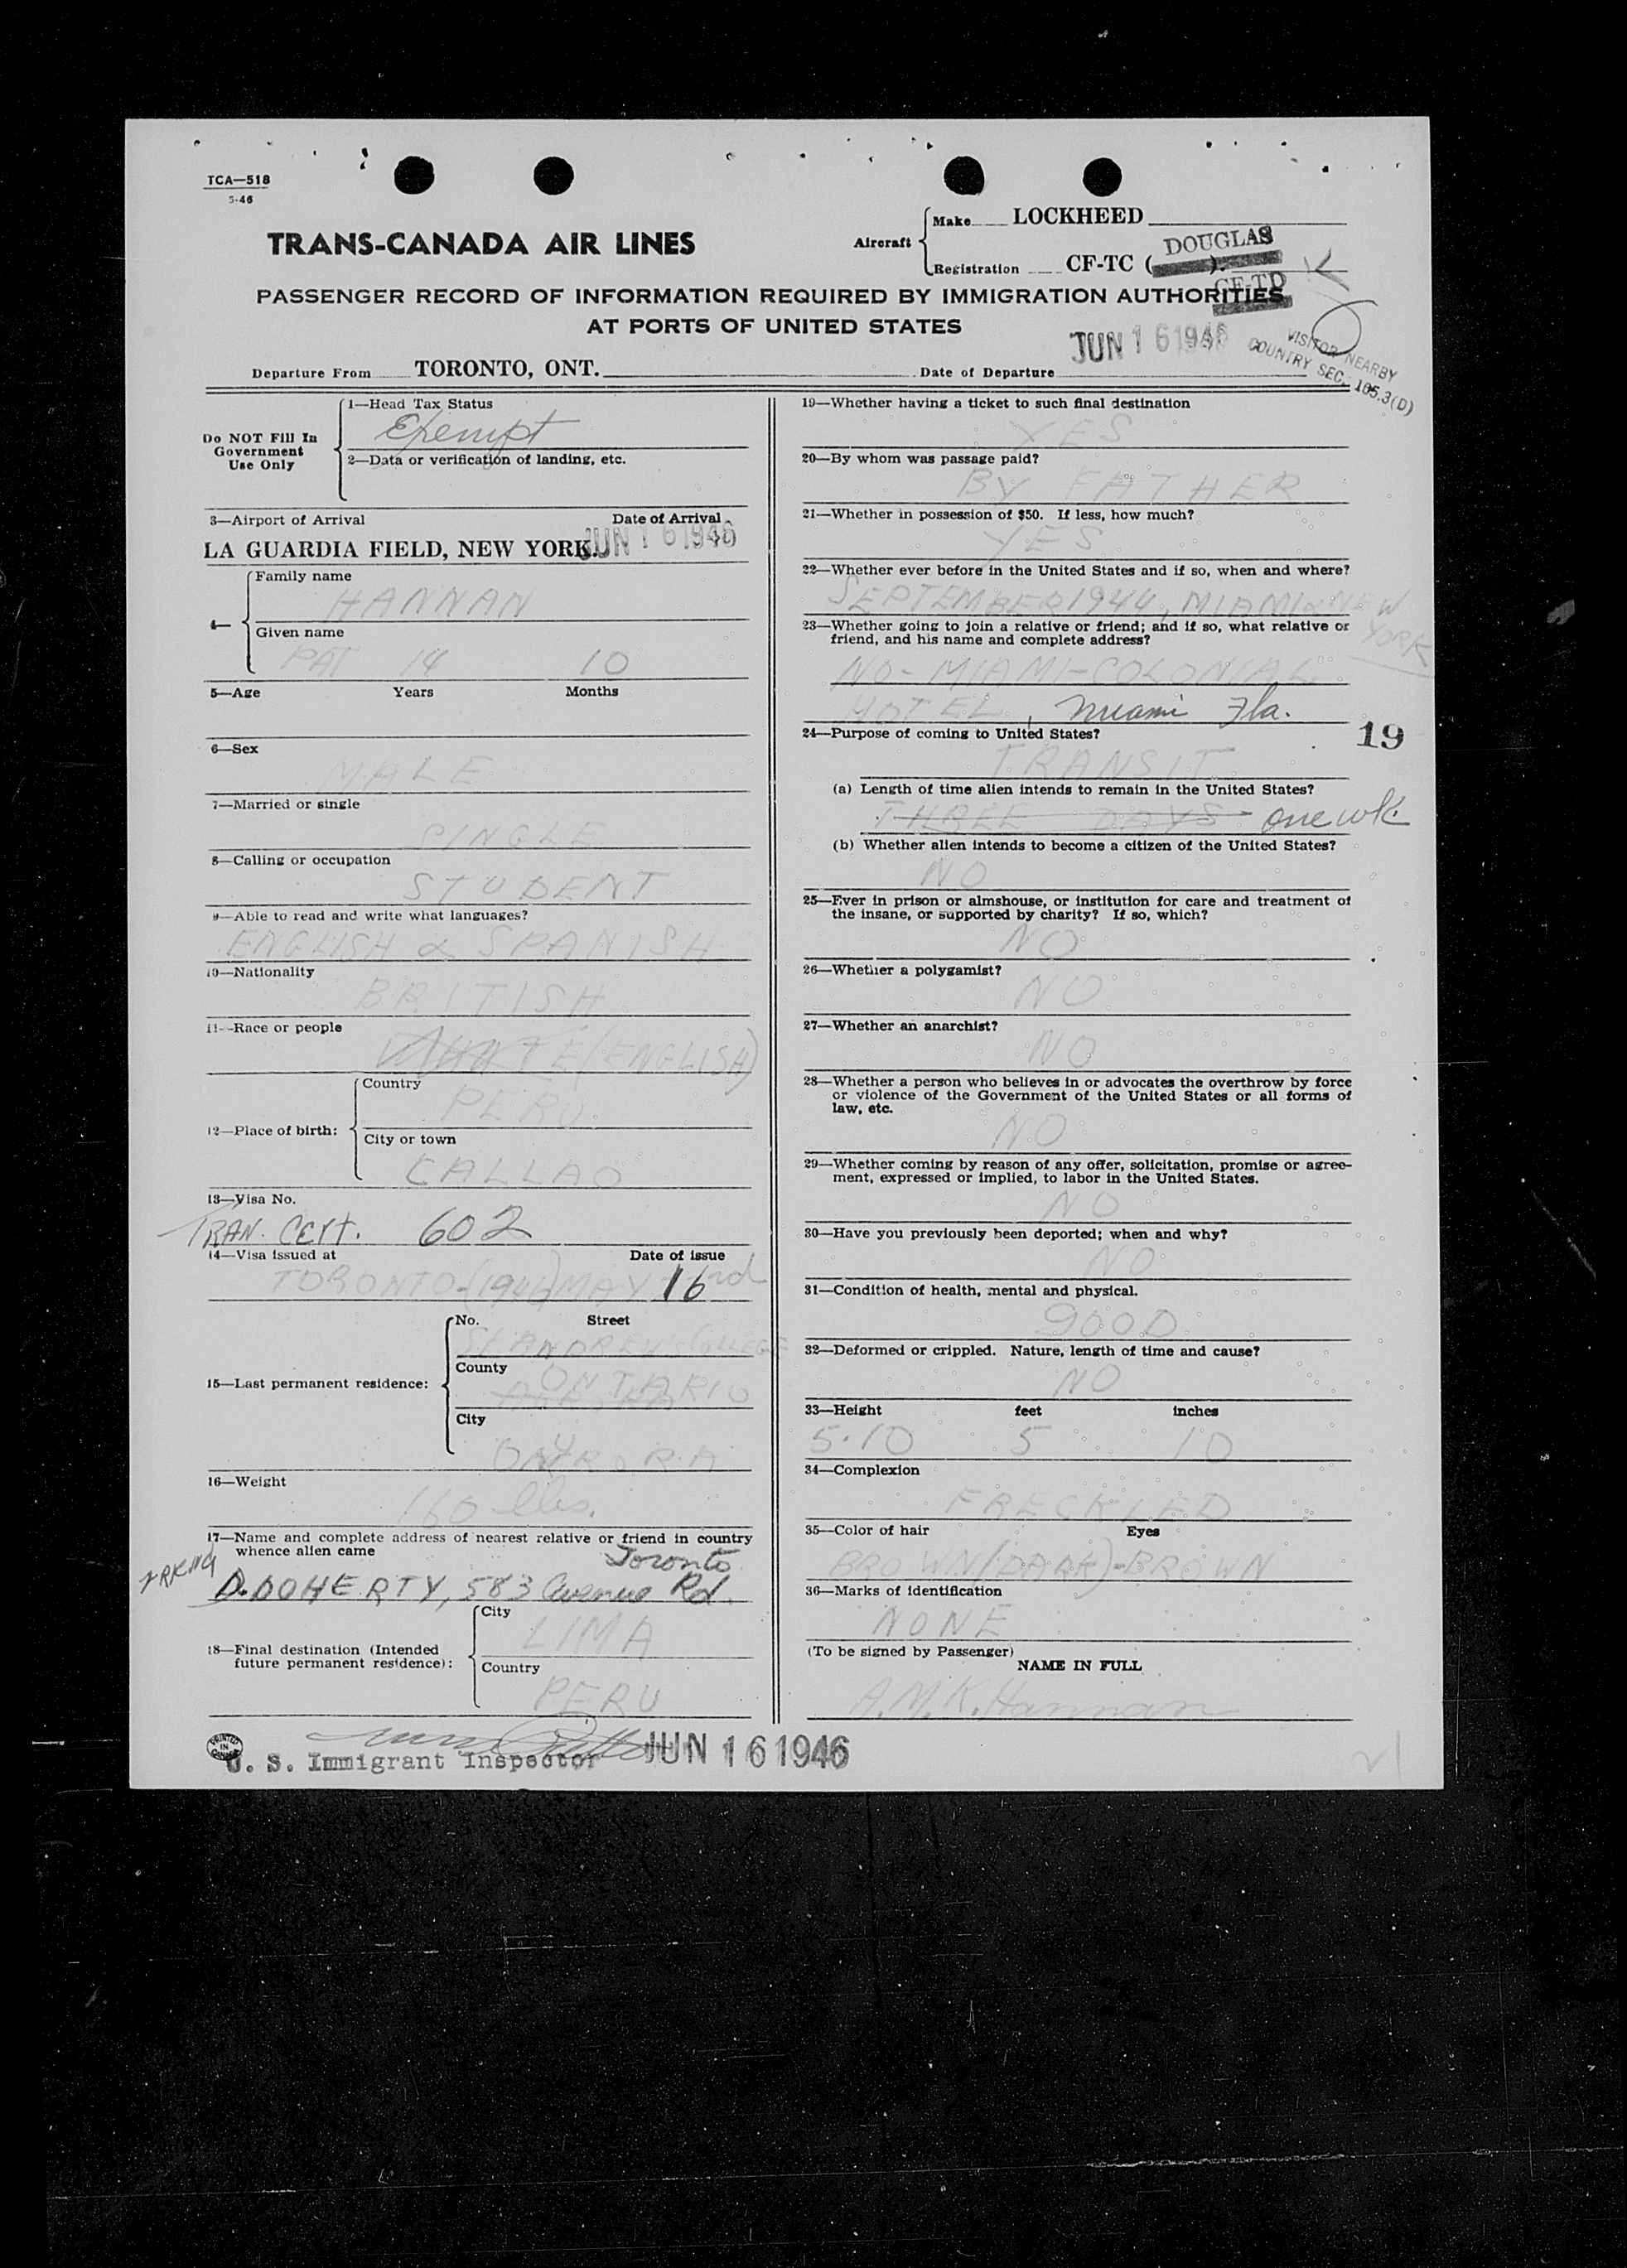 TCA—518
5-46
TRANS-CANADA AIR LINES
Aircraft
Make LOCKHEED
Registration CF-TC ( ).
DOUGLAS
CF-TD
PASSENGER RECORD OF INFORMATION REQUIRED BY IMMIGRATION AUTHORITIES
AT PORTS OF UNITED STATES
JUN 16 1946
VISITOR NEARBY
COUNTRY SEC. 165.3(D)
Departure From TORONTO, ONT.
Date of Departure
Do NOT Fill In
Government
Use Only
1—Head Tax Status
Exempt
2—Data or verification of landing, etc.
3—Airport of Arrival Date of Arrival
LA GUARDIA FIELD, NEW YORK. JUN 16 1946
4—
Family name
HANNAN
Given name
PAT 14 10
5—Age Years Months
6—Sex
MALE
7—Married or single
SINGLE
8—Calling or occupation
STUDENT
9—Able to read and write what languages?
ENGLISH & SPANISH
10—Nationality
BRITISH
11—Race or people
WHITE (ENGLISH)
12—Place of birth:
Country
PERU
City or town
CALLAO
13—Visa No.
TRAN. CERT. 602
14—Visa issued at Date of issue
TORONTO-(1946) MAY 16rd
15—Last permanent residence:
No. Street
ST ANDREWS COLLEGE
County
ONTARIO
City
AURORA
16—Weight
160 lbs.
17—Name and complete address of nearest relative or friend in country
whence alien came
Toronto
D. DOHERTY, 583 Avenue Rd.
18—Final destination (Intended
future permanent residence):
City
LIMA
Country
PERU
PRINTED IN CANADA
U. S. Immigrant Inspector JUN 16 1946
19—Whether having a ticket to such final destination
YES
20—By whom was passage paid?
BY FATHER
21—Whether in possession of $50. If less, how much?
YES
22—Whether ever before in the United States and if so, when and where?
SEPTEMBER 1944, MIAMI & NEW
YORK
23—Whether going to join a relative or friend; and if so, what relative or
friend, and his name and complete address?
NO - MIAMI-COLONIAL
HOTEL, Miami Fla.
19
24—Purpose of coming to United States?
TRANSIT
(a) Length of time alien intends to remain in the United States?
THREE DAYS - one wk.
(b) Whether alien intends to become a citizen of the United States?
NO
25—Ever in prison or almshouse, or institution for care and treatment of
the insane, or supported by charity? If so, which?
NO
26—Whether a polygamist?
NO
27—Whether an anarchist?
NO
28—Whether a person who believes in or advocates the overthrow by force
or violence of the Government of the United States or all forms of
law, etc.
NO
29—Whether coming by reason of any offer, solicitation, promise or agree-
ment, expressed or implied, to labor in the United States.
NO
30—Have you previously been deported; when and why?
NO
31—Condition of health, mental and physical.
GOOD
32—Deformed or crippled. Nature, length of time and cause?
NO
33—Height feet inches
5·10 5 10
34—Complexion
FRECKLED
35—Color of hair Eyes
BROWN (DARK) - BROWN
36—Marks of identification
NONE
(To be signed by Passenger)
NAME IN FULL
A.M.K. Hannan